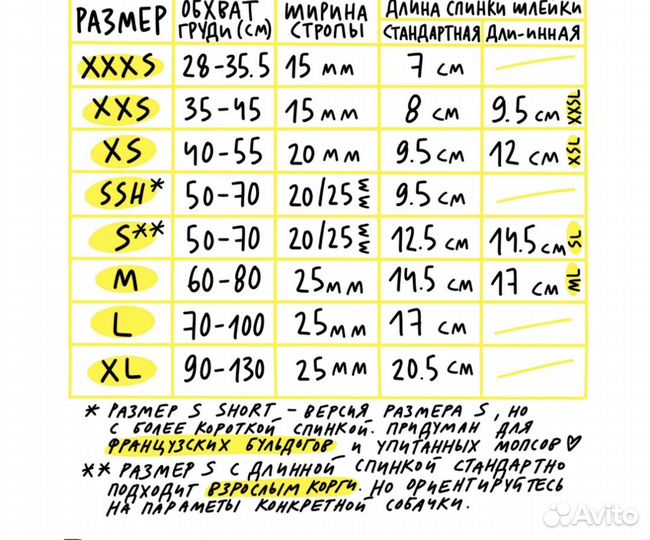 РАЗМЕР ОБХВАТ ГРУДИ (СМ) ШИРИНА СТРОПЫ ДЛИНА СПИНКИ ШЛЕЙКИ
СТАНДАРТНАЯ ДЛИ-ИННАЯ
XXXS 28-35.5 15 мм 7 см
XXS 35-45 15 мм 8 см 9.5 см XXSL
XS 40-55 20 мм 9.5 см 12 см XSL
SSH* 50-70 20/25 мм 9.5 см
S** 50-70 20/25 мм 12.5 см 14.5 см SL
M 60-80 25 мм 14.5 см 17 см ML
L 70-100 25 мм 17 см
XL 90-130 25 мм 20.5 см
* РАЗМЕР S SHORT - ВЕРСИЯ РАЗМЕРА S, НО
С БОЛЕЕ КОРОТКОЙ СПИНКОЙ. ПРИДУМАН ДЛЯ
ФРАНЦУЗСКИХ БУЛЬДОГОВ И УПИТАННЫХ МОПСОВ ♡
** РАЗМЕР S С ДЛИННОЙ СПИНКОЙ СТАНДАРТНО
ПОДХОДИТ ВЗРОСЛЫМ КОРГИ. НО ОРИЕНТИРУЙТЕСЬ
НА ПАРАМЕТРЫ КОНКРЕТНОЙ СОБАЧКИ.
Avito